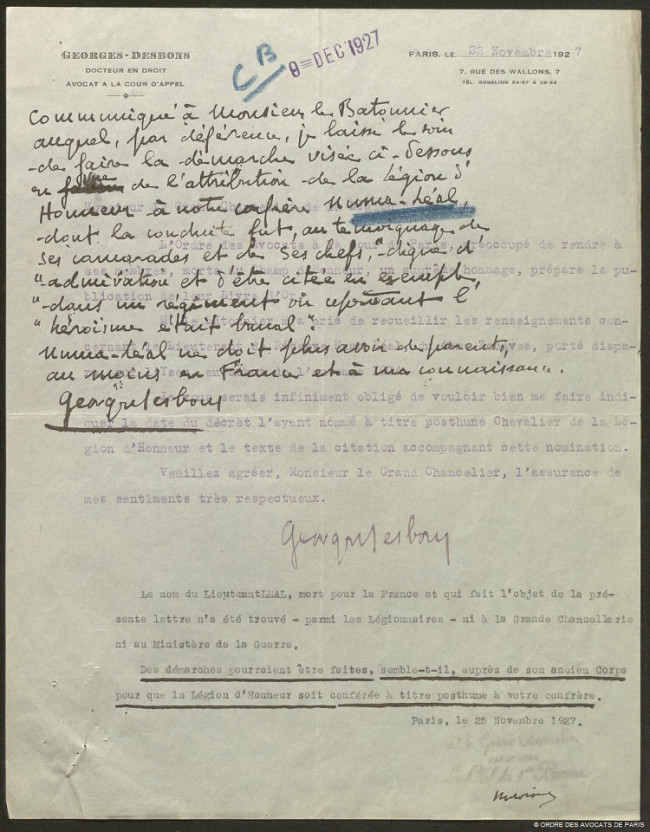 GEORGES-DESBONS
DOCTEUR EN DROIT
AVOCAT A LA COUR D'APPEL
CB
9 = DEC 1927
PARIS, LE 22 Novembre 1927
7, RUE DES WALLONS, 7
TÉL. GOBELINS
Communiqué à Monsieur le Batonnier
auquel, par déférence, je laisse le soin
de faire la démarche visée ci-dessous
en vue de l'attribution de la Légion d'
Honneur à notre confrère Numa-Léal,
dont la conduite fut, au témoignage de
ses camarades et de ses chefs, "digne d'
"admiration et d'être citée en exemple,
"dans un régiment où cependant l'
"héroïsme était banal".
Numa-Léal ne doit plus avoir de parents,
au moins en France et à ma connaissance.
Georges Desbons
L'Ordre des Avocats à la Cour de Paris, préoccupé de rendre à
ses membres, morts au champ d'honneur, un suprême homage, prépare la pu-
blication de leur Livre d'Or.
M. le Batonnier m'a prié de recueillir les renseignements con-
cernant le Lieutenant porté dispa-
Je vous serais infiniment obligé de vouloir bien me faire indi-
quer la date du décrêt l'ayant nommé à titre posthume Chevalier de la Lé-
gion d'Honneur et le texte de la citation accompagnant cette nomination.
Veuillez agréer, Monsieur le Grand Chancelier, l'assurance de
mes sentiments très respectueux.
Georges Desbons
Le nom du LieutenantLEAL, mort pour la France et qui fait l'objet de la pré-
sente lettre n'a été trouvé - parmi les Légionnaires - ni à la Grande Chancellerie
ni au Ministère de la Guerre.
Des démarches pourraient être faites, semble-t-il, auprès de son ancien Corps
pour que la Légion d'Honneur soit conférée à titre posthume à votre confrère.
Paris, le 25 Novembre 1927.
© ORDRE DES AVOCATS DE PARIS